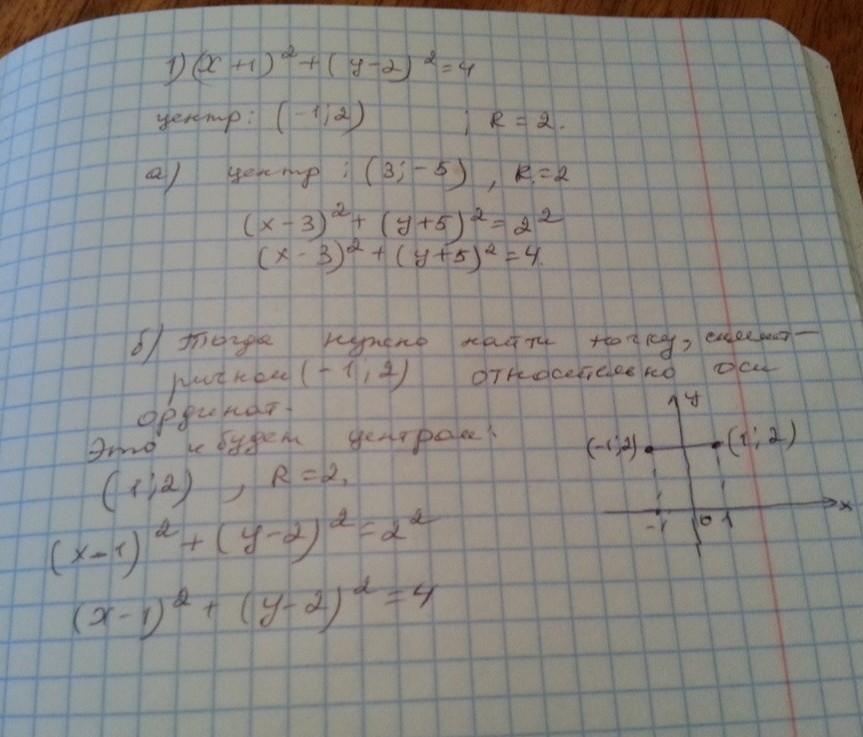 1) (x+1)² + (y-2)² = 4
центр: (-1; 2) ; R = 2.
а) центр: (3; -5), R = 2
(x-3)² + (y+5)² = 2²
(x-3)² + (y+5)² = 4.
б) Тогда нужно найти точку, симмет-
ричную (-1; 2) относительно оси
ординат.
Это и будет центром:
(1; 2), R = 2.
(x-1)² + (y-2)² = 2²
(x-1)² + (y-2)² = 4
y
(-1; 2) (1; 2)
-1 0 1 x